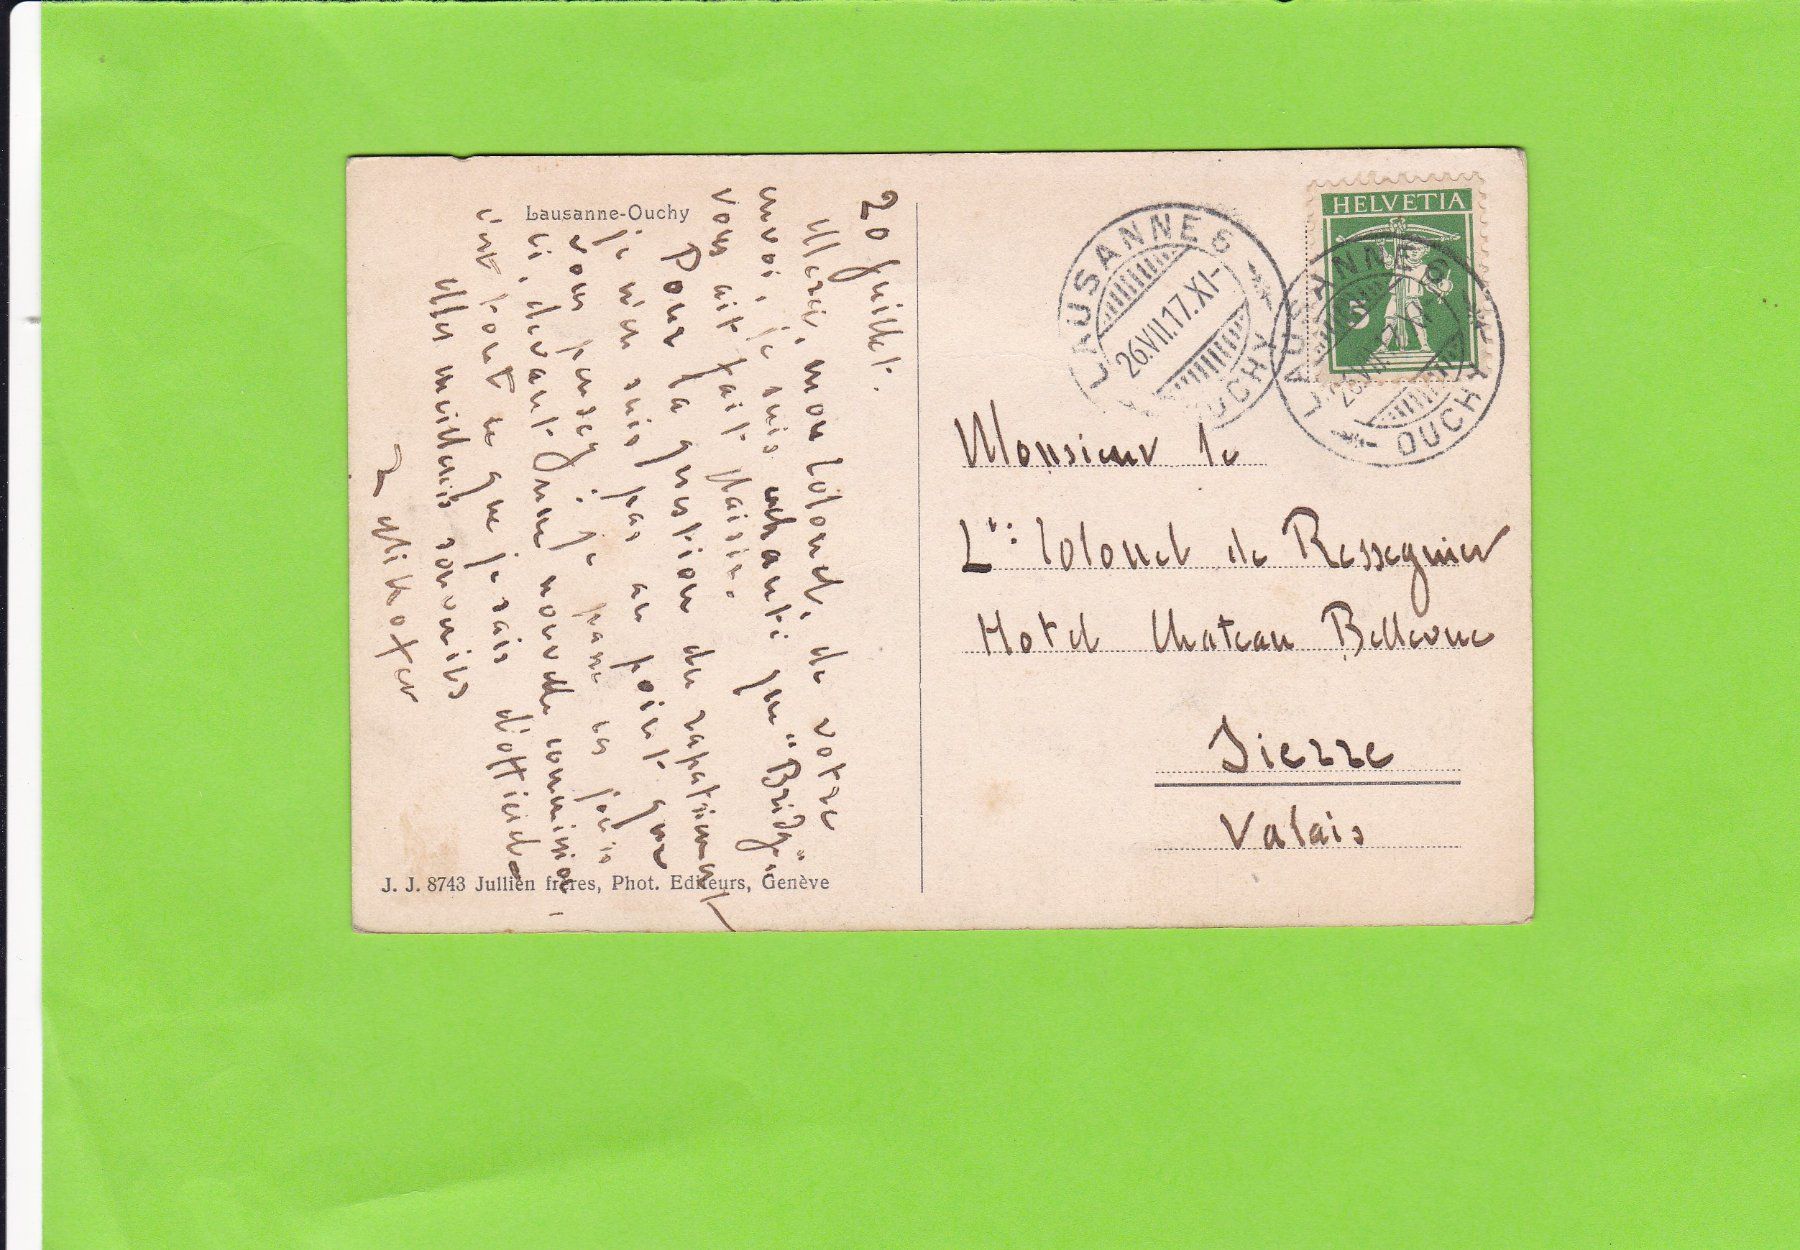 Lausanne-Ouchy
20 juillet.
Merci, mon Colonel, de votre
envoi, je suis enchanté que "Bridge"
vous ait fait plaisir.
Pour la question du rapatriement
je n'en suis pas au point que
vous pensez : je passe ces jours
ci, devant une nouvelle commission,
c'est tout ce que je sais d'officiel.
Mes meilleurs souvenirs
J. J. 8743 Jullien frères, Phot. Editeurs, Genève
HELVETIA
5
LAUSANNE 5
26.VII.17.XI-
OUCHY
LAUSANNE 5
26.VII.17.XI-
OUCHY
Monsieur le
Lt: Colonel de Resseguier
Hotel Chateau Bellevue
Sierre
Valais